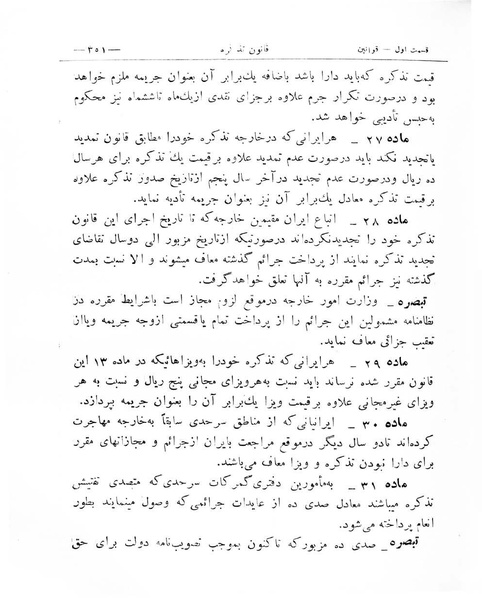 قسمت اول – قوانین
قانون تذکره
—۳۵۱—
قیمت تذکره که‌باید دارا باشد باضافه یك‌برابر آن بعنوان جریمه ملزم خواهد
بود و درصورت تکرار جرم علاوه برجزای نقدی ازیك‌ماه تاششماه نیز محکوم
به‌حبس تأدیبی خواهد شد.
ماده ۲۷ – هرایرانی‌که درخارجه تذکره خودرا مطابق قانون تمدید
یاتجدید نکند باید درصورت عدم تمدید علاوه برقیمت تذکره برای هرسال
ده ریال ودرصورت عدم تجدید درآخر سال پنجم ازتاریخ صدور تذکره علاوه
برقیمت تذکره معادل یك‌برابر آن نیز بعنوان جریمه تأدیه نماید.
ماده ۲۸ – اتباع ایران مقیمین خارجه‌که تا تاریخ اجرای این قانون
تذکره خود را تجدیدنکرده‌اند درصورتیکه ازتاریخ مزبور الی دوسال تقاضای
تجدید تذکره نمایند از پرداخت جرائم گذشته معاف میشوند و الا نسبت بمدت
گذشته نیز جرائم مقرره به آنها تعلق خواهدگرفت.
تبصره – وزارت امور خارجه درموقع لزوم مجاز است باشرایط مقرره در
نظامنامه مشمولین این جرائم را از پرداخت تمام یاقسمتی ازوجه جریمه ویااز
تعقیب جزائی معاف نماید.
ماده ۲۹ – هرایرانی‌که تذکره خودرا به‌ویزاهائیکه در ماده ۱۳ این
قانون مقرر شده نرساند باید نسبت به‌هرویزای مجانی پنج ریال و نسبت به هر
ویزای غیرمجانی علاوه برقیمت ویزا یك‌برابر آن را بعنوان جریمه بپردازد.
ماده ۳۰ – ایرانیانی‌که از مناطق سرحدی سابقاً به‌خارجه مهاجرت
کرده‌اند تادو سال دیگر درموقع مراجعت بایران ازجرائم و مجازاتهای مقرر
برای دارا نبودن تذکره و ویزا معاف می‌باشند.
ماده ۳۱ – به‌مأمورین دفتری‌گمرکات سرحدی‌که متصدی تفتیش
تذکره میباشند معادل صدی ده از عایدات جرائمی‌که وصول مینمایند بطور
انعام پرداخته می‌شود.
تبصره – صدی ده مزبورکه تاکنون بموجب تصویب‌نامه دولت برای حق